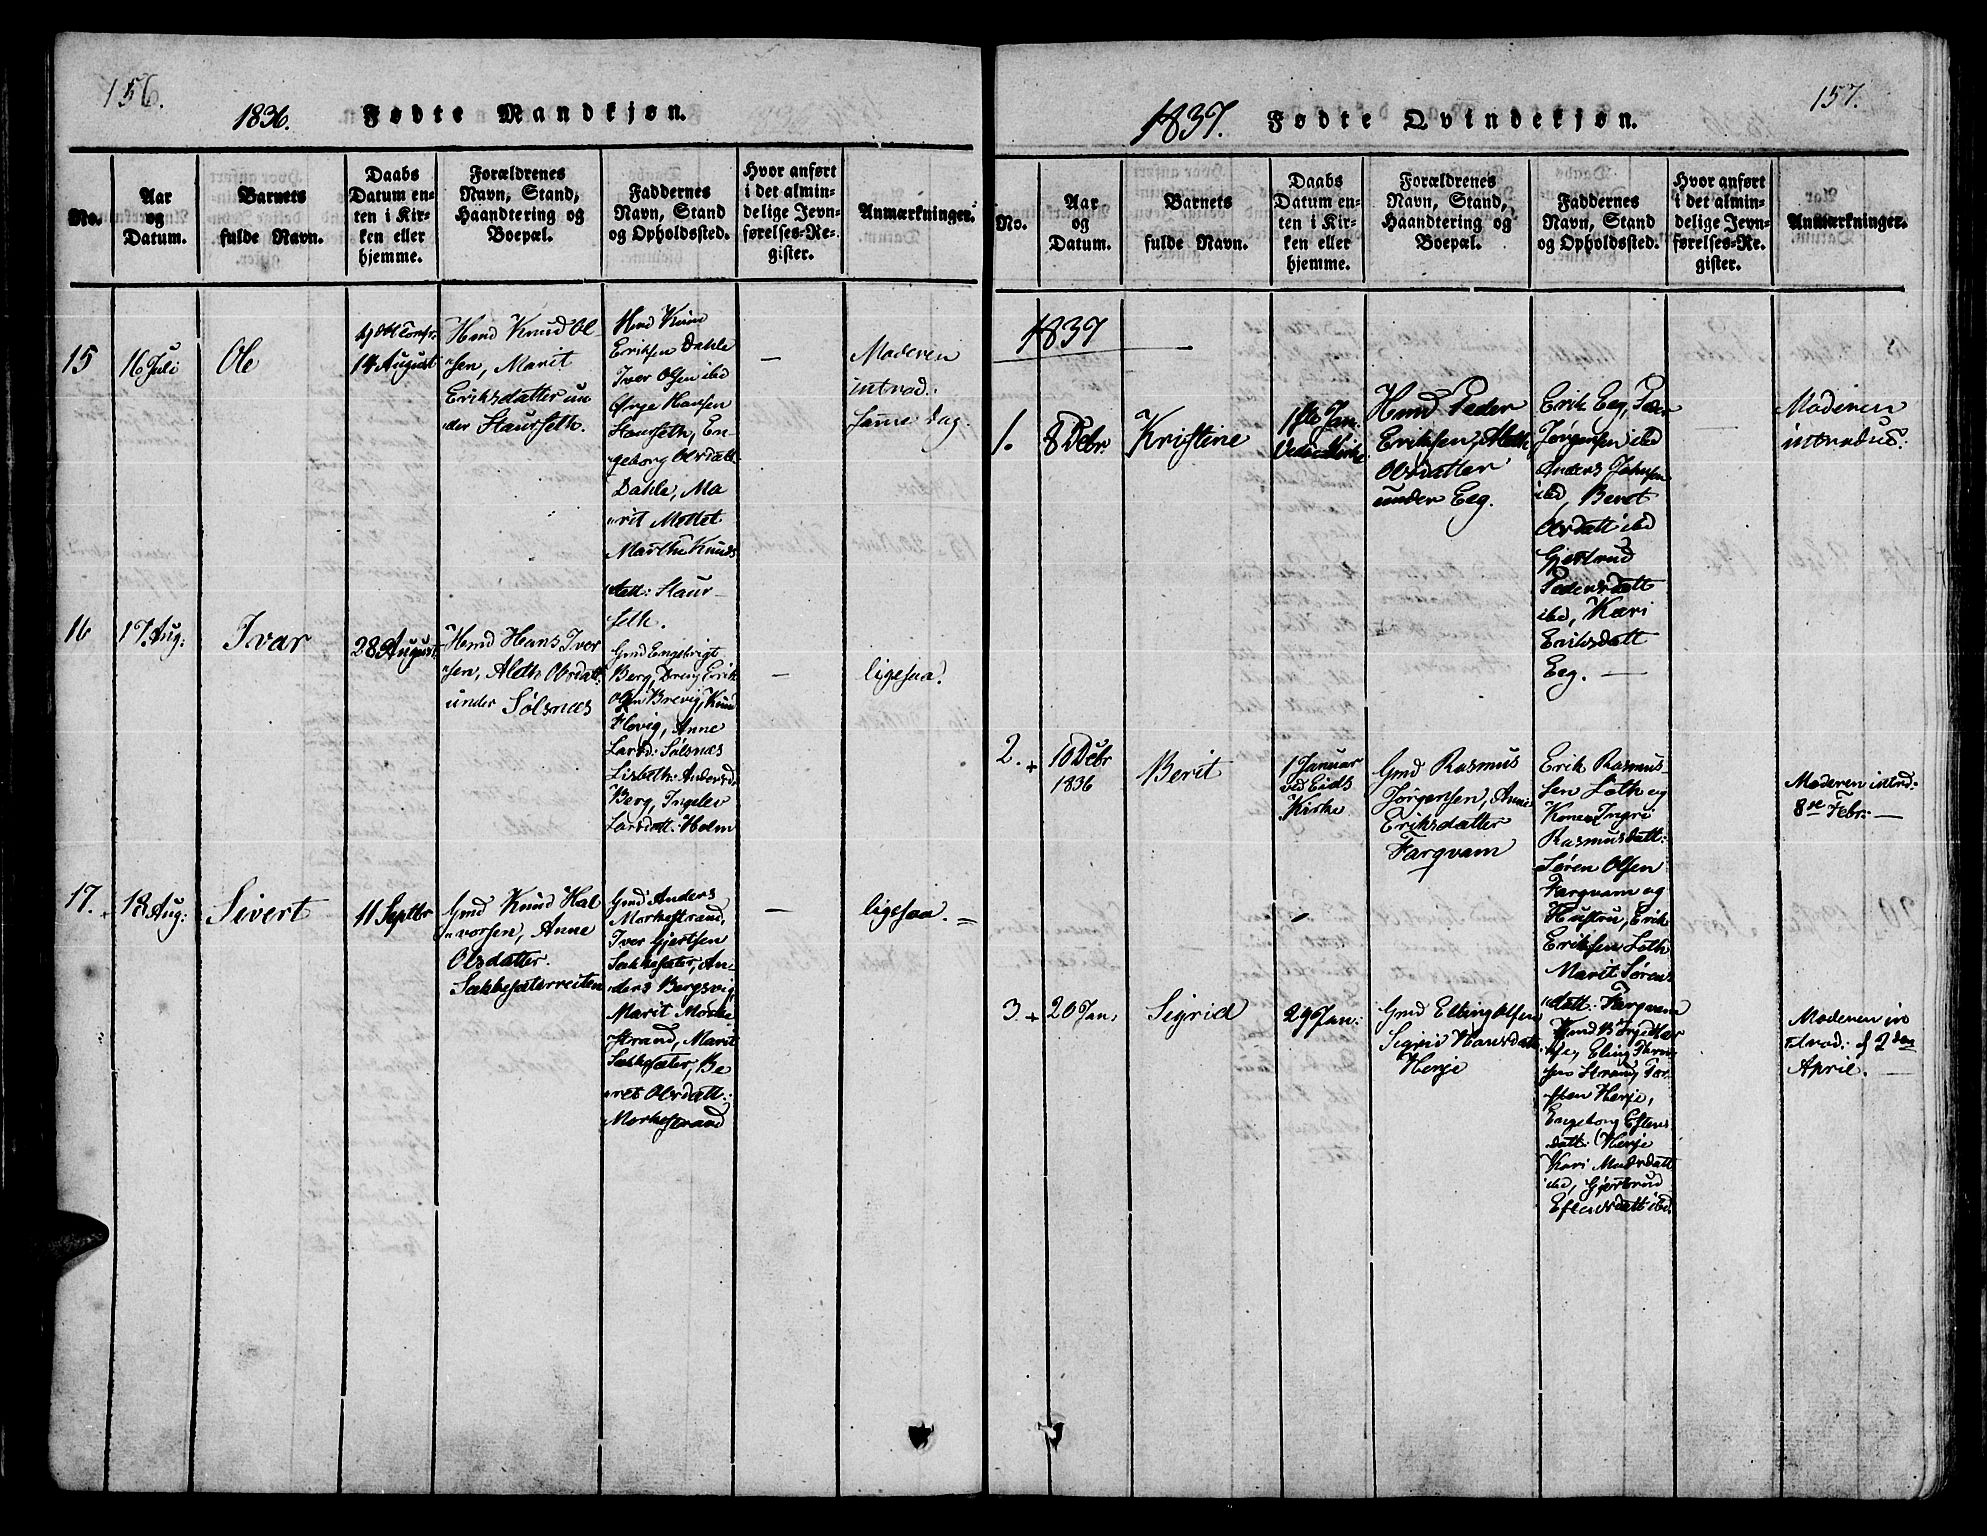 156.
1836. Fødte Mandkjøn.
No.
Aar
og
Datum.
Barnets
fulde Navn.
Daabs
Datum en-
ten i Kir-
ken eller
hjemme.
Forældrenes
Navn, Stand,
Haandtering og
Boepæl.
Faddernes
Navn, Stand
og Opholdssted.
Hvor anført
i det almin-
delige Jevn-
førelses-Re-
gister.
Anmærkninger.
15
16 Juli
Ole
14 August
Hmd Knud Ol
"sen, Marit
Eriksdatter un
der Staurseth.
Hmd Knud
Eriksen Dahle
Iver Olsen ibd
Ørge Hansen
Staurseth, En-
geborg Olsdatt
Dahle, Ma
"rit Mottet
Marthe Knuds
datt: Staur-
seth.
—
Moderen
introd:
samme dag.
16
17. Aug:
Ivar
28 August
Hmd Hans Iver
"sen, Aleth Olsdatt:
under Sølsnæs
Gmd Engebrigt
Berg, Dreng Erik
Olsen Brevig, Knud
Flovig, Anne
Larsd: Sølsnæs
Lisbeth Andersd
Berg, Ingeler
Larsdatt: Holm
—
ligesaa.
17.
18 Aug:
Sivert
11 Septbr
Gmd Knud Hal
"vorsen, Anne
Olsdatter.
Sækkesæterreiten
Gmd Anders
Morkestrand,
Iver Gjertsen
Sækkesæter, An-
"ders Bergsvig,
Marit Morke
"strand, Marit
Sækkesæter, Be
"ret Olsdatt:
Morkestrand
—
ligesaa. =
157.
1837. Fødte Qvindekjøn.
No.
Aar
og
Datum.
Barnets
fulde Navn.
Daabs
Datum en-
ten i Kir-
ken eller
hjemme.
Forældrenes
Navn, Stand,
Haandtering og
Boepæl.
Faddernes
Navn, Stand
og Opholdssted.
Hvor anført
i det almin-
delige Jevn-
førelses-Re-
gister.
Anmærkninger.
1837
1.
8 Debr:
Kristine
1ste Jan.
Hmd Peder
Eriksen, Aleth
Olsdatter
under Eeg.
Erik Eeg, Peder
Jørgensen ibd
Anders Johnsen
ibd, Beret
Olsdatt ibd
Gjertrud
Pedersdatt
ibd, Kari
Eriksdatt
Eeg. —
Moderen
introduc:
2. +
10 Debr
1836
Berit
1 Januar
ved Eids
Kirke
Gmd Rasmus
Jørgensen, Anne
Eriksdatter
Farqvam
Erik Rasmus-
sen Loth og
Kone Ingri
Rasmusdatt:
Søren Olsen
Farqvam og
Hustru, Erik
Eriksen Loth
Marit Sørens
"datt: Farqvam
Moderen introd:
8de Febr: —
3. +
20 Jan,
Sigrid
29 Jan:
Gmd Elling Olsen
Sigrid Hansdatt:
Herje
Engeborg Eftens
datt: Herje
Kari Madsdatt
ibd, Gjertrud
Eftensdatt ibd.
Moderen in
trod: d 2den
April. —